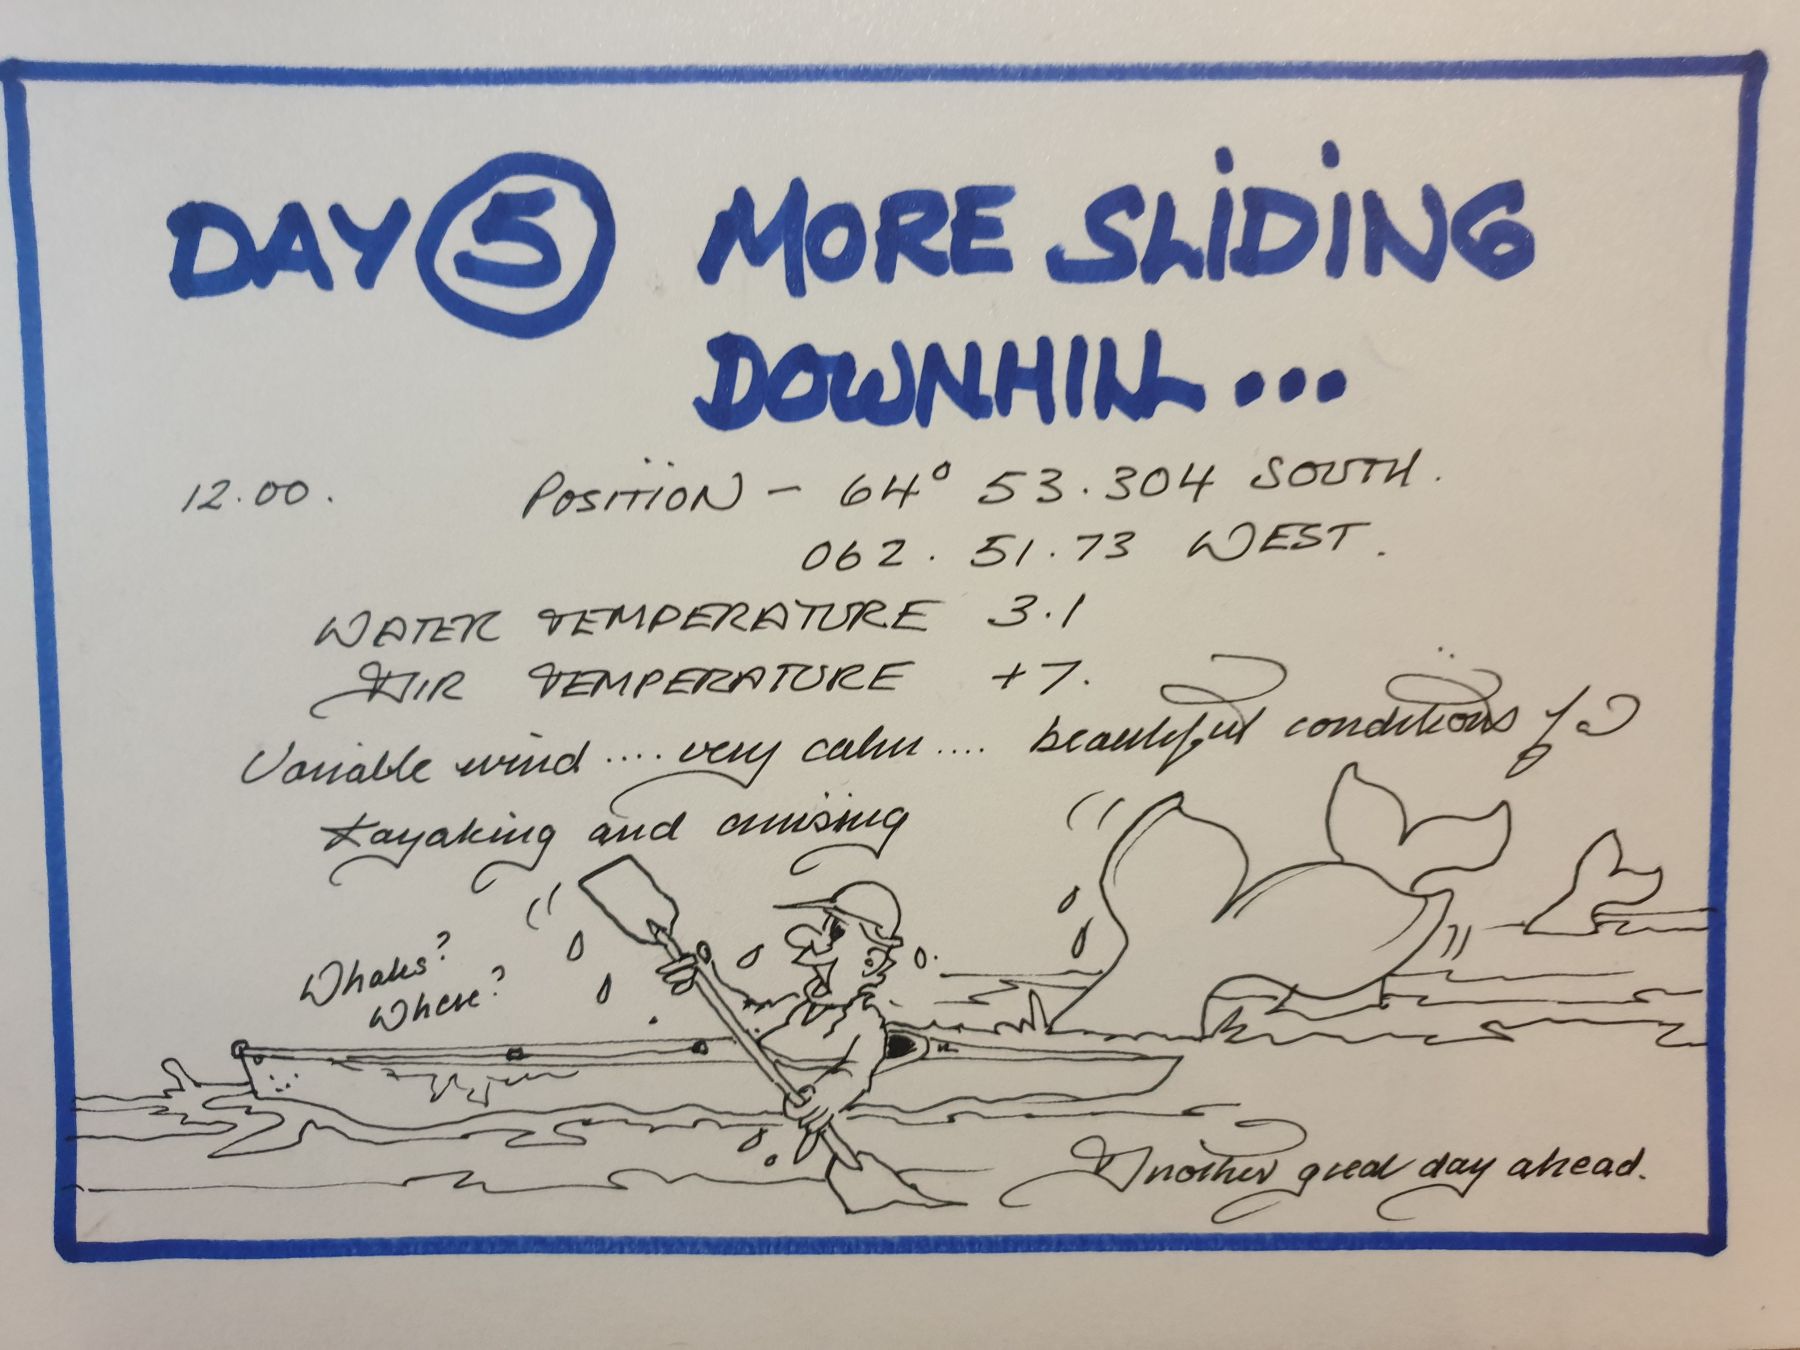 DAY 5 MORE SLIDING
DOWNHILL...
12.00. POSITION - 64° 53.304 SOUTH.
062. 51.73 WEST.
WATER TEMPERATURE 3.1
AIR TEMPERATURE +7.
Variable wind .... very calm .... beautiful conditions for
Kayaking and cruising
Whales?
Where?
Another great day ahead.